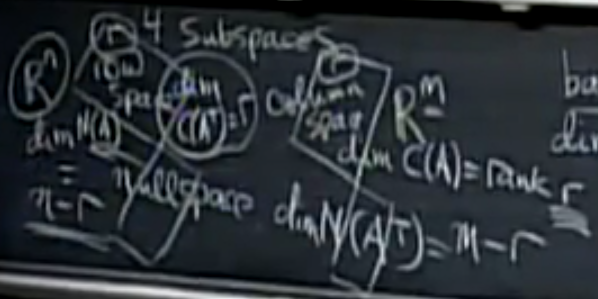 4 Subspaces
Rⁿ
r
row
space
dim
C(Aᵀ)=r
dim N(A)
=
n-r
nullspace
r
column
space
Rᵐ
dim C(A)=rank r
dim N(Aᵀ)=m-r
ba
dim